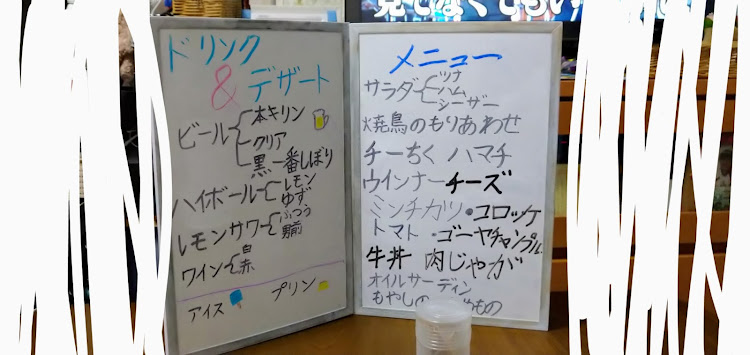 ドリンク
&デザート
ビール
本キリン
クリア
黒一番しぼり
ハイボール
レモン
ゆず
レモンサワー
ふつう
男前
ワイン
白
赤
アイス プリン
メニュー
サラダ
ツナ
ハム
シーザー
焼鳥のもりあわせ
チーちく ハマチ
ウインナーチーズ
ミンチカツ・コロッケ
トマト・ゴーヤチャンプル
牛丼 肉じゃが
オイルサーディン
もやしの
もの